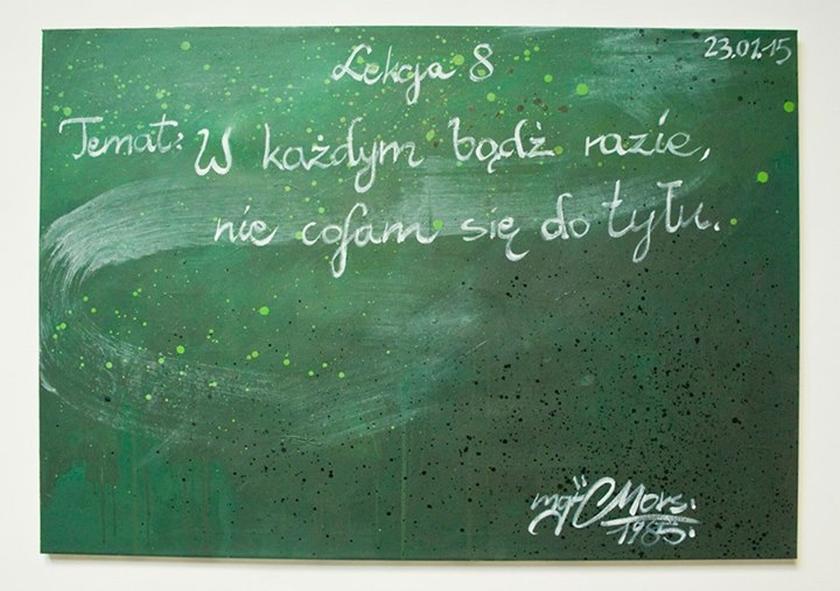 23.01.15
Lekcja 8
Temat: W każdym bądź razie,
nie cofam się do tyłu.
Mors.
1985.